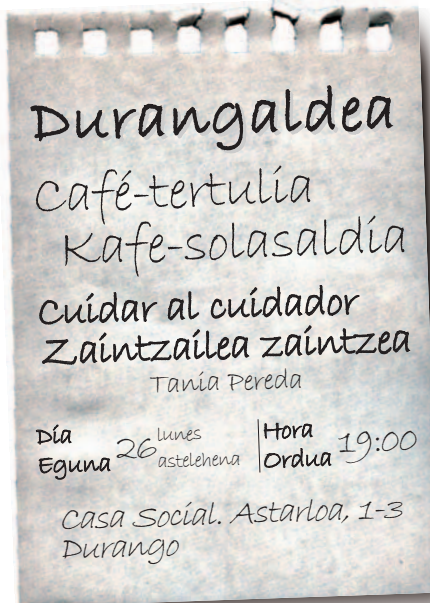 Durangaldea
Café-tertulia
Kafe-solasaldia
Cuidar al cuidador
Zaintzailea zaintzea
Tania Pereda
Día
Eguna
26
lunes
astelehena
Hora
Ordua
19:00
Casa Social. Astarloa, 1-3
Durango